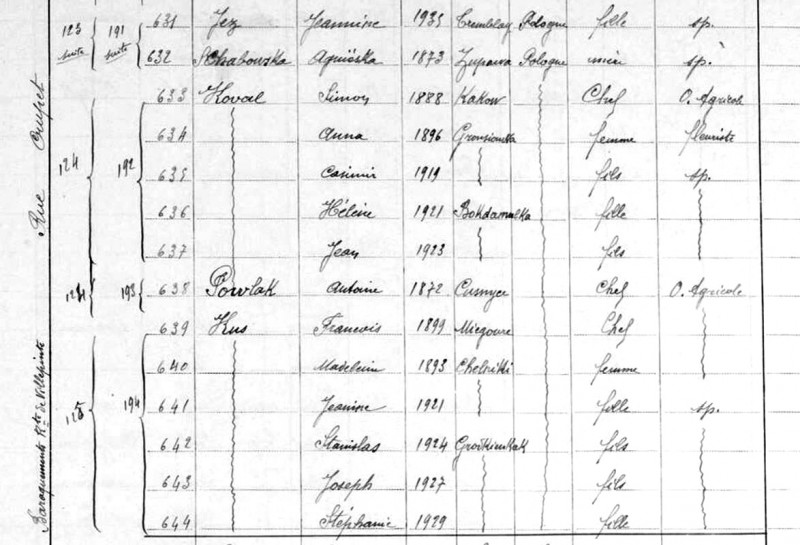 123 suite 191 suite 631 Jez Jeannine 1935 Tremblay Pologne fille sp.
632 Agniéska 1873 Zuparva Pologne mère sp.
Rue Crupet 124 192 633 Koval Simon 1888 Kakow Chef O. Agricole
634 Anna 1896 femme fleuriste
635 Casimir 1919 fils sp.
636 Hélène 1921 fille
637 Jean 1923 fils
124 193 638 Powlak Antoine 1872 Cusnyce Chef O. Agricole
Baraquements Rte de Villepinte 125 194 639 Kus Francois 1899 Miegoure Chef
640 Madeleine 1893 Cholnikki femme
641 Jeanine 1921 fille sp.
642 Stanislas 1924 fils
643 Joseph 1927 fils
644 Stéphanie 1929 fille